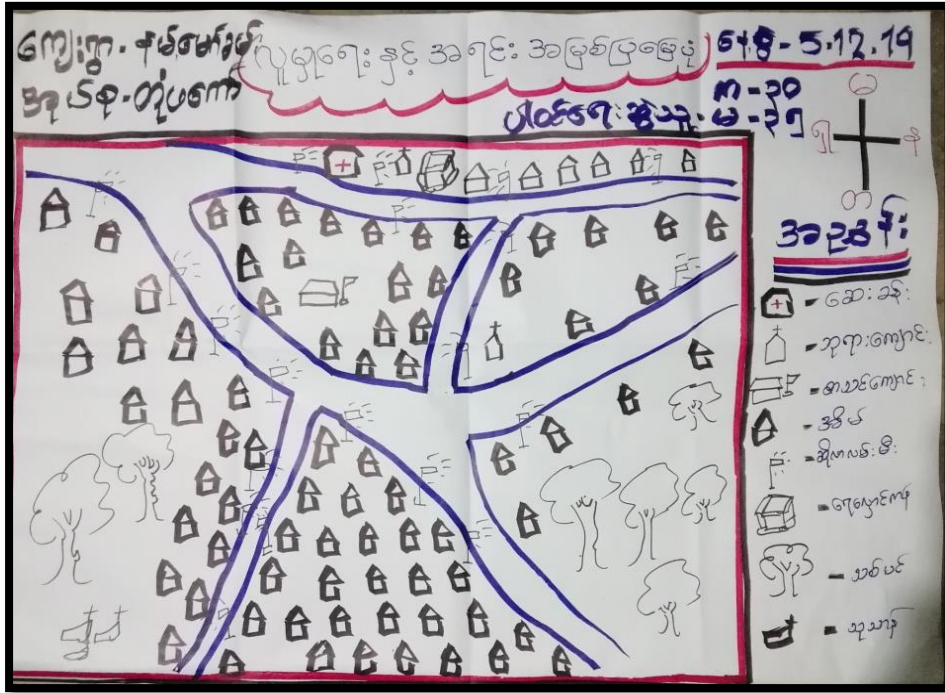 ကျေးရွာ - နမ်မော်ခမ်
အုပ်စု - တုံပကော်
လူမှုရေး နှင့် အရင်း အမြစ်ပြမြေပုံ
နေ့စွဲ - 5.12.19
ပါဝင်ရေးဆွဲသူ - မ - ၃၅
ကျာ - ၃၀
မ
ရှ
န
တ
အညွှန်း
+ = ဆေးခန်း
= ဘုရားကျောင်း
= စာသင်ကျောင်း
= အိမ်
= ဆိုလာလမ်းမီး
= ရေလှောင်ကန်
= သစ်ပင်
= သုသာန်